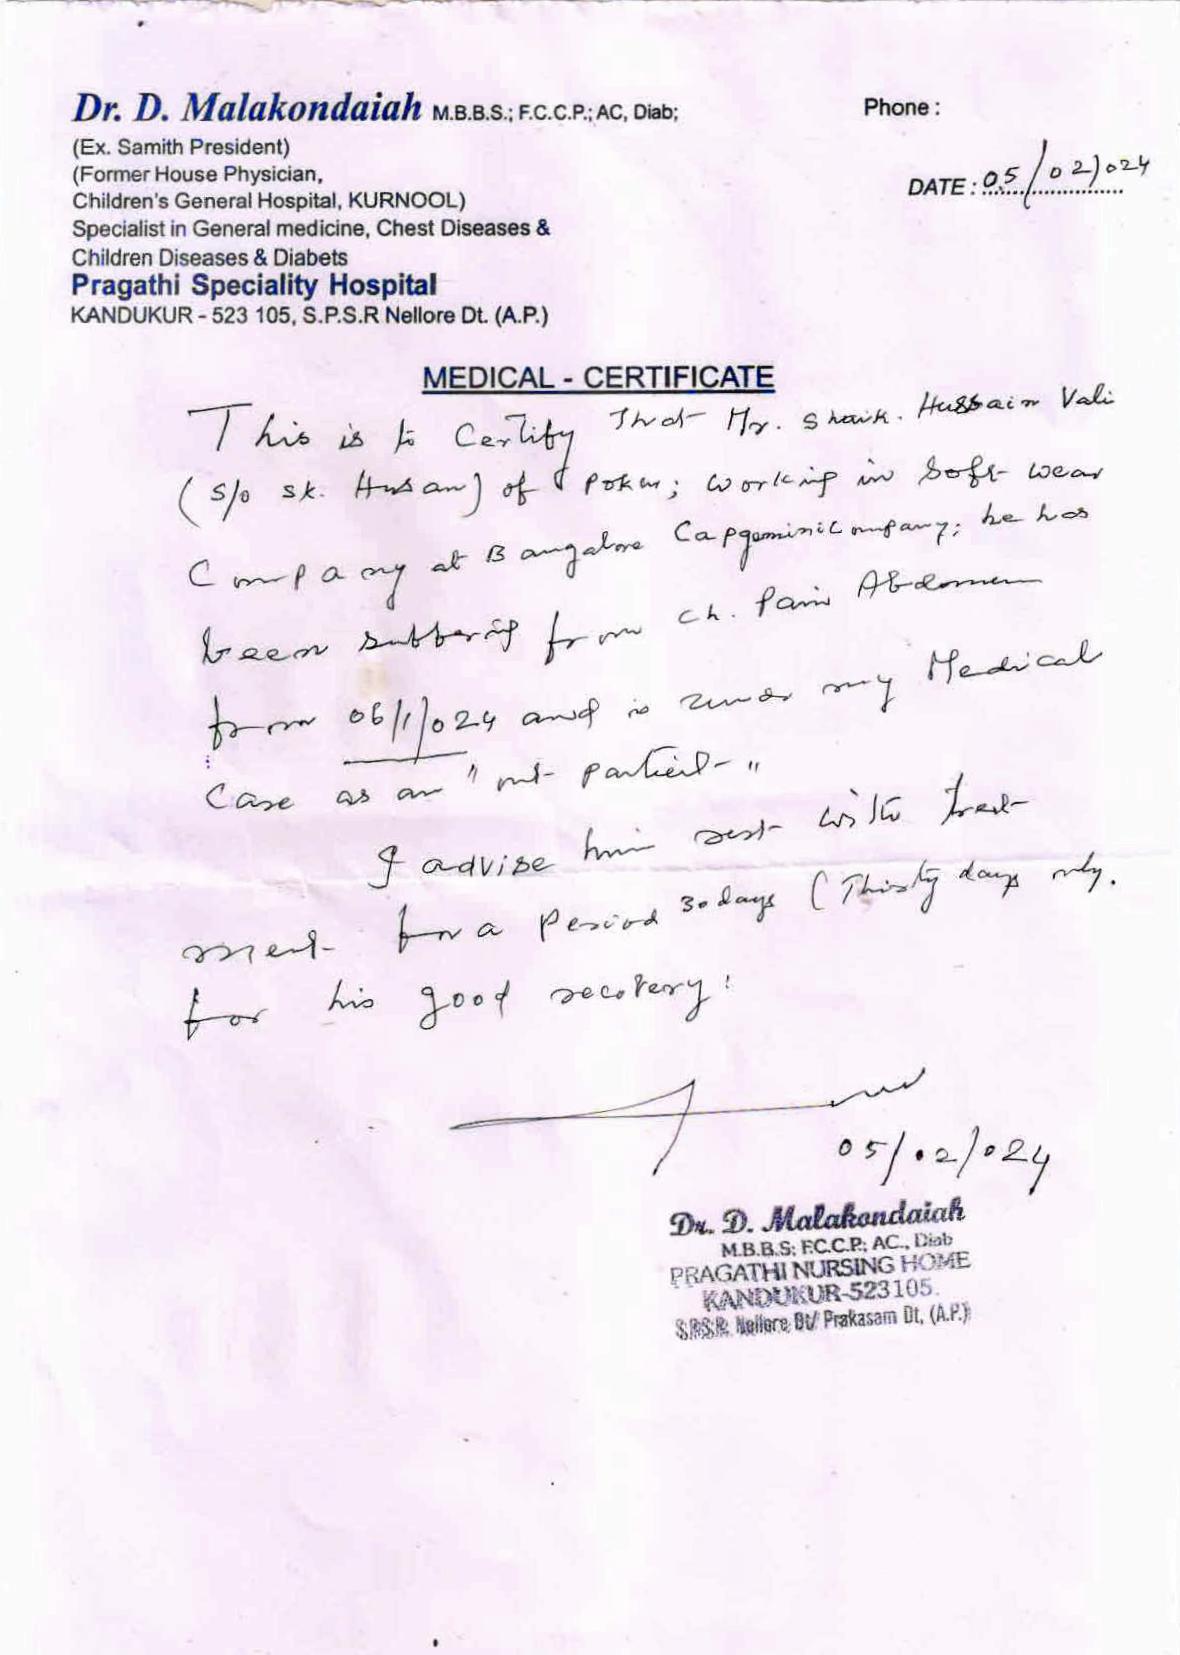 Dr. D. Malakondaiah M.B.B.S.; F.C.C.P.; AC, Diab;
Phone :
(Ex. Samith President)
(Former House Physician,
DATE : 05/02/024
Children's General Hospital, KURNOOL)
Specialist in General medicine, Chest Diseases &
Children Diseases & Diabets
Pragathi Speciality Hospital
KANDUKUR - 523 105, S.P.S.R Nellore Dt. (A.P.)
MEDICAL - CERTIFICATE
This is to Certify That Mr. Shaik. Hussain Vali
(S/o Sk. Husan) of ; working in Soft wear
Company at Bangalore Capgemini Company; he has
been suffering from ch. Pain Abdomen
from 06/1/024 and is under my Medical
Case as an " out patient "
I advise him rest with treat-
ment for a Period 30 days (Thirty days only.
for his good recovery.
05/02/024
Dr. D. Malakondaiah
M.B.B.S; F.C.C.P.; AC., Diab
PRAGATHI NURSING HOME
KANDUKUR-523105.
S.P.S.R. Nellore Dt/ Prakasam Dt, (A.P.)